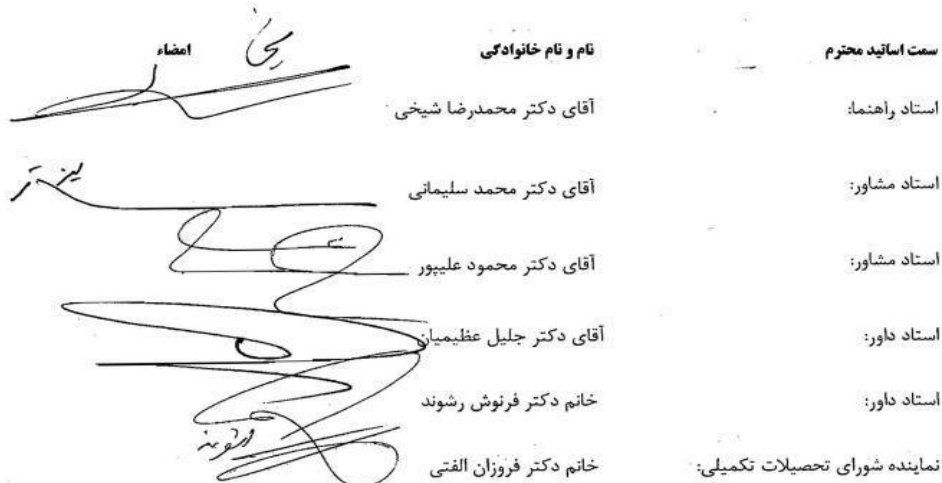 سمت اساتید محترم نام و نام خانوادگی امضاء
استاد راهنما: آقای دکتر محمدرضا شیخی
استاد مشاور: آقای دکتر محمد سلیمانی
استاد مشاور: آقای دکتر محمود علیپور
استاد داور: آقای دکتر جلیل عظیمیان
استاد داور: خانم دکتر فرنوش رشوند
نماینده شورای تحصیلات تکمیلی: خانم دکتر فروزان الفتی